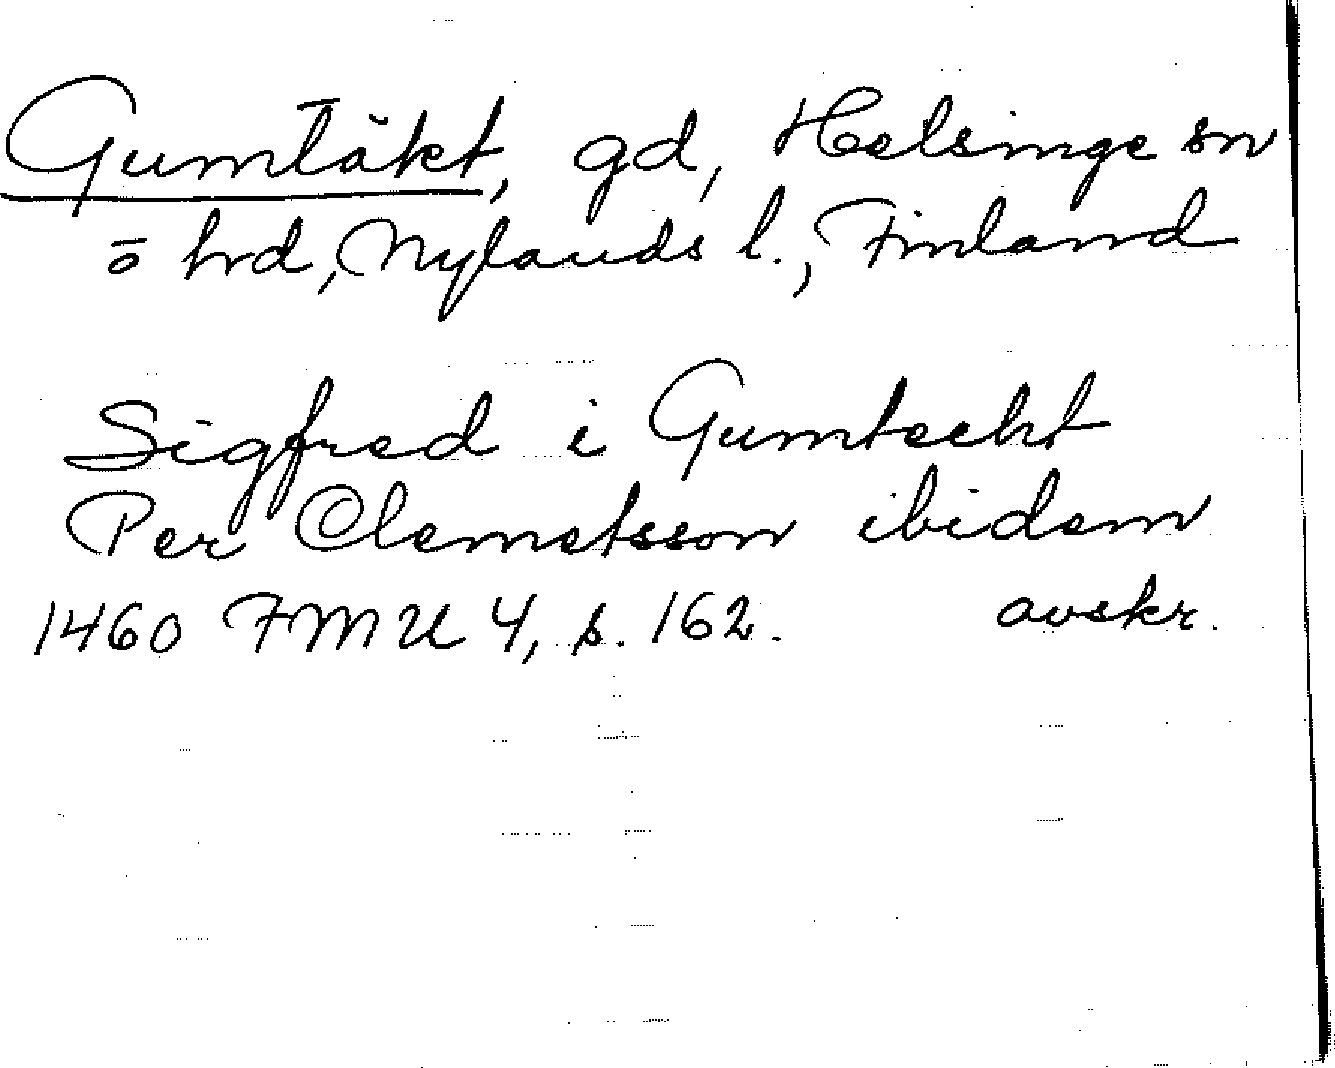 Gumtäkt, gd, Helsinge sn
o hrd, Nylands l., Finland
Sigfred i Gumtecht
Per Clemetsson ibidem
1460 FMU 4, s. 162. avskr.